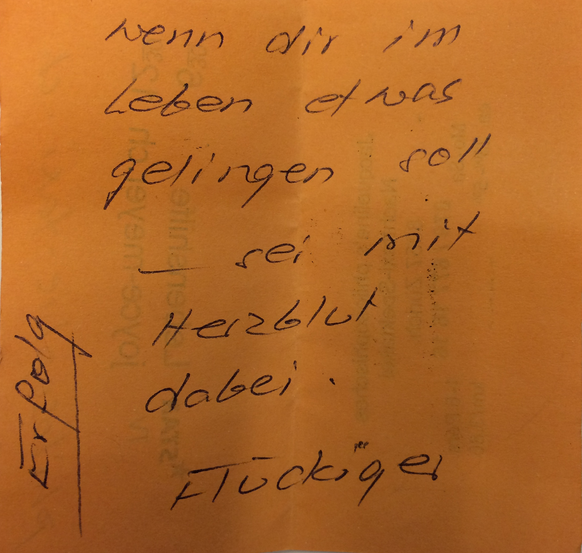 wenn dir im
Leben etwas
gelingen soll
– sei mit
Herzblut
dabei.
Flückiger
Erfolg